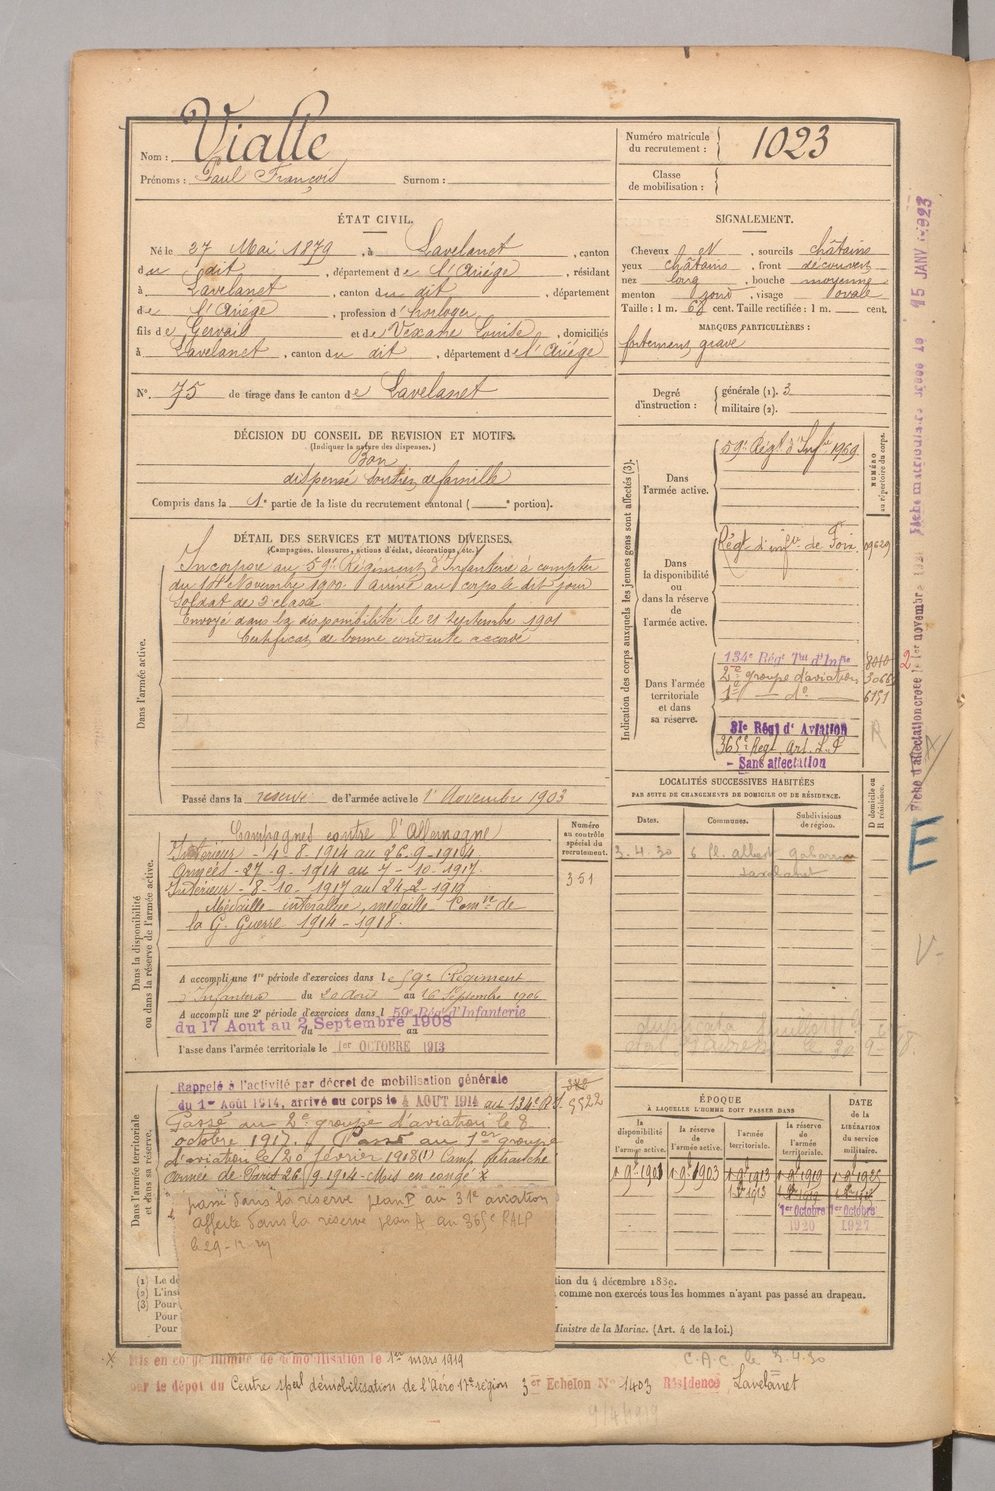 Nom : Vialle
Prénoms : Paul François Surnom :
Numéro matricule du recrutement : 1023
Classe de mobilisation :
ÉTAT CIVIL.
Né le 27 Mai 1879, à Lavelanet, canton
du dit, département de l'Ariège, résidant
à Lavelanet, canton du dit, département
de l'Ariège, profession d'horloger,
fils de Gervais et de Vexane Louise, domiciliés
à Lavelanet, canton du dit, département de l'Ariège
N° 75 de tirage dans le canton de Lavelanet
SIGNALEMENT.
Cheveux N, sourcils châtains
yeux châtains, front découvert
nez long, bouche moyenne
menton rond, visage ovale
Taille : 1 m. 68 cent. Taille rectifiée : 1 m. cent.
MARQUES PARTICULIÈRES :
fortement gravé
Degré d'instruction : générale (1). 3
militaire (2).
DÉCISION DU CONSEIL DE REVISION ET MOTIFS.
(Indiquer la nature des dispenses.)
Bon
dispensé soutien de famille
Compris dans la 1e partie de la liste du recrutement cantonal ( e portion).
DÉTAIL DES SERVICES ET MUTATIONS DIVERSES.
(Campagnes, blessures, actions d'éclat, décorations, etc.)
Dans l'armée active.
Incorporé au 59e Régiment d'Infanterie à compter
du 14 Novembre 1900. Arrivé au corps le dit jour
Soldat de 2e classe
Envoyé dans la disponibilité le 21 septembre 1901
Certificat de bonne conduite accordé
Passé dans la réserve de l'armée active le 1er Novembre 1903
Indication des corps auxquels les jeunes gens sont affectés (3).
NUMÉRO au répertoire du corps.
Dans l'armée active.
59e Régt d'Infie 1969
Dans la disponibilité ou dans la réserve de l'armée active.
Régt d'infie de Foix 09629
Dans l'armée territoriale et dans sa réserve.
134e Régt Tal d'Infie 8010
2e groupe d'aviation 3066
1er — do 6151
31e Régt d'Aviation
365e Régt Art. L. P
- Sans affectation
Dans la disponibilité ou dans la réserve de l'armée active.
Numéro au contrôle spécial du recrutement.
351
Campagnes contre l'Allemagne
Intérieur - 4-8-1914 au 26-9-1914
Armées - 27-9-1914 au 7-10-1917
Intérieur - 8-10-1917 au 24-2-1919
Médaille interalliée, médaille Comve de
la G. Guerre 1914-1918.
A accompli une 1re période d'exercices dans le 59e Régiment
d'Infanterie du 20 Août au 16 Septembre 1906
A accompli une 2e période d'exercices dans le 59e Régt d'Infanterie
du 17 Aout au 2 Septembre 1908
Passé dans l'armée territoriale le 1er OCTOBRE 1913
LOCALITÉS SUCCESSIVES HABITÉES
PAR SUITE DE CHANGEMENTS DE DOMICILE OU DE RÉSIDENCE.
Dates. Communes. Subdivisions de région. D domicile ou R résidence.
3.4.30 6 Pl. Albert
Lavelanet
Dans l'armée territoriale et dans sa réserve.
Rappelé à l'activité par décret de mobilisation générale
du 1er Août 1914, arrivé au corps le 4 AOUT 1914 au 134e R.I.
5522
Passé au 2e groupe d'aviation le 8
octobre 1917. Passé au 1er groupe
d'aviation le 20 février 1918 (1) Camp retranché
Armée de Paris 26/9 1914 - Mis en congé X
passé dans la réserve plan P au 31e aviation
affecté dans la réserve plan A au 365e RALP
le 29-12-27
ÉPOQUE
A LAQUELLE L'HOMME DOIT PASSER DANS
la disponibilité de l'armée active. la réserve de l'armée active. l'armée territoriale. la réserve de l'armée territoriale.
DATE de la LIBÉRATION du service militaire.
1 9bre 1901 1 9bre 1903 1 9bre 1913 1 9bre 1919 1 9bre 1925
1er Octobre 1920 1er Octobre 1927
(1) Le de
(2) L'ins
(3) Pour
Pour
Pour
tion du 4 décembre 1889.
comme non exercés tous les hommes n'ayant pas passé au drapeau.
Ministre de la Marine. (Art. 4 de la loi.)
X Mis en congé illimité de démobilisation le 1er mars 1919
par le dépôt du Centre spal démobilisation de l'Aéro 17e région 3er Echelon N° 1403 Résidence Lavelanet
C.A.C. le 3.4.30
9/4/1919
15 JANV 1923
2
E
V-